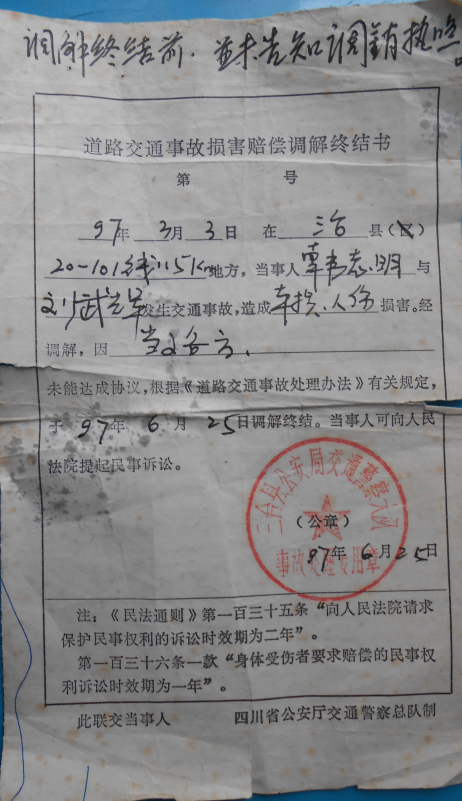 调解终结前.并未告知调销执照。
道路交通事故损害赔偿调解终结书
第 号
97年 3月 3日 在 三台 县(区)
20-101线115Km地方，当事人 覃书志.明 与
刘武 发生交通事故，造成 车损.人伤 损害。经
调解，因 当事各方、
未能达成协议，根据《道路交通事故处理办法》有关规定，
于 97年 6月 25日调解终结。当事人可向人民
法院提起民事诉讼。
三台县公安局交通警察大队
(公章)
事故处理专用章
97年 6月25日
注：《民法通则》第一百三十五条“向人民法院请求
保护民事权利的诉讼时效期为二年”。
第一百三十六条一款“身体受伤者要求赔偿的民事权
利诉讼时效期为一年”。
此联交当事人 四川省公安厅交通警察总队制